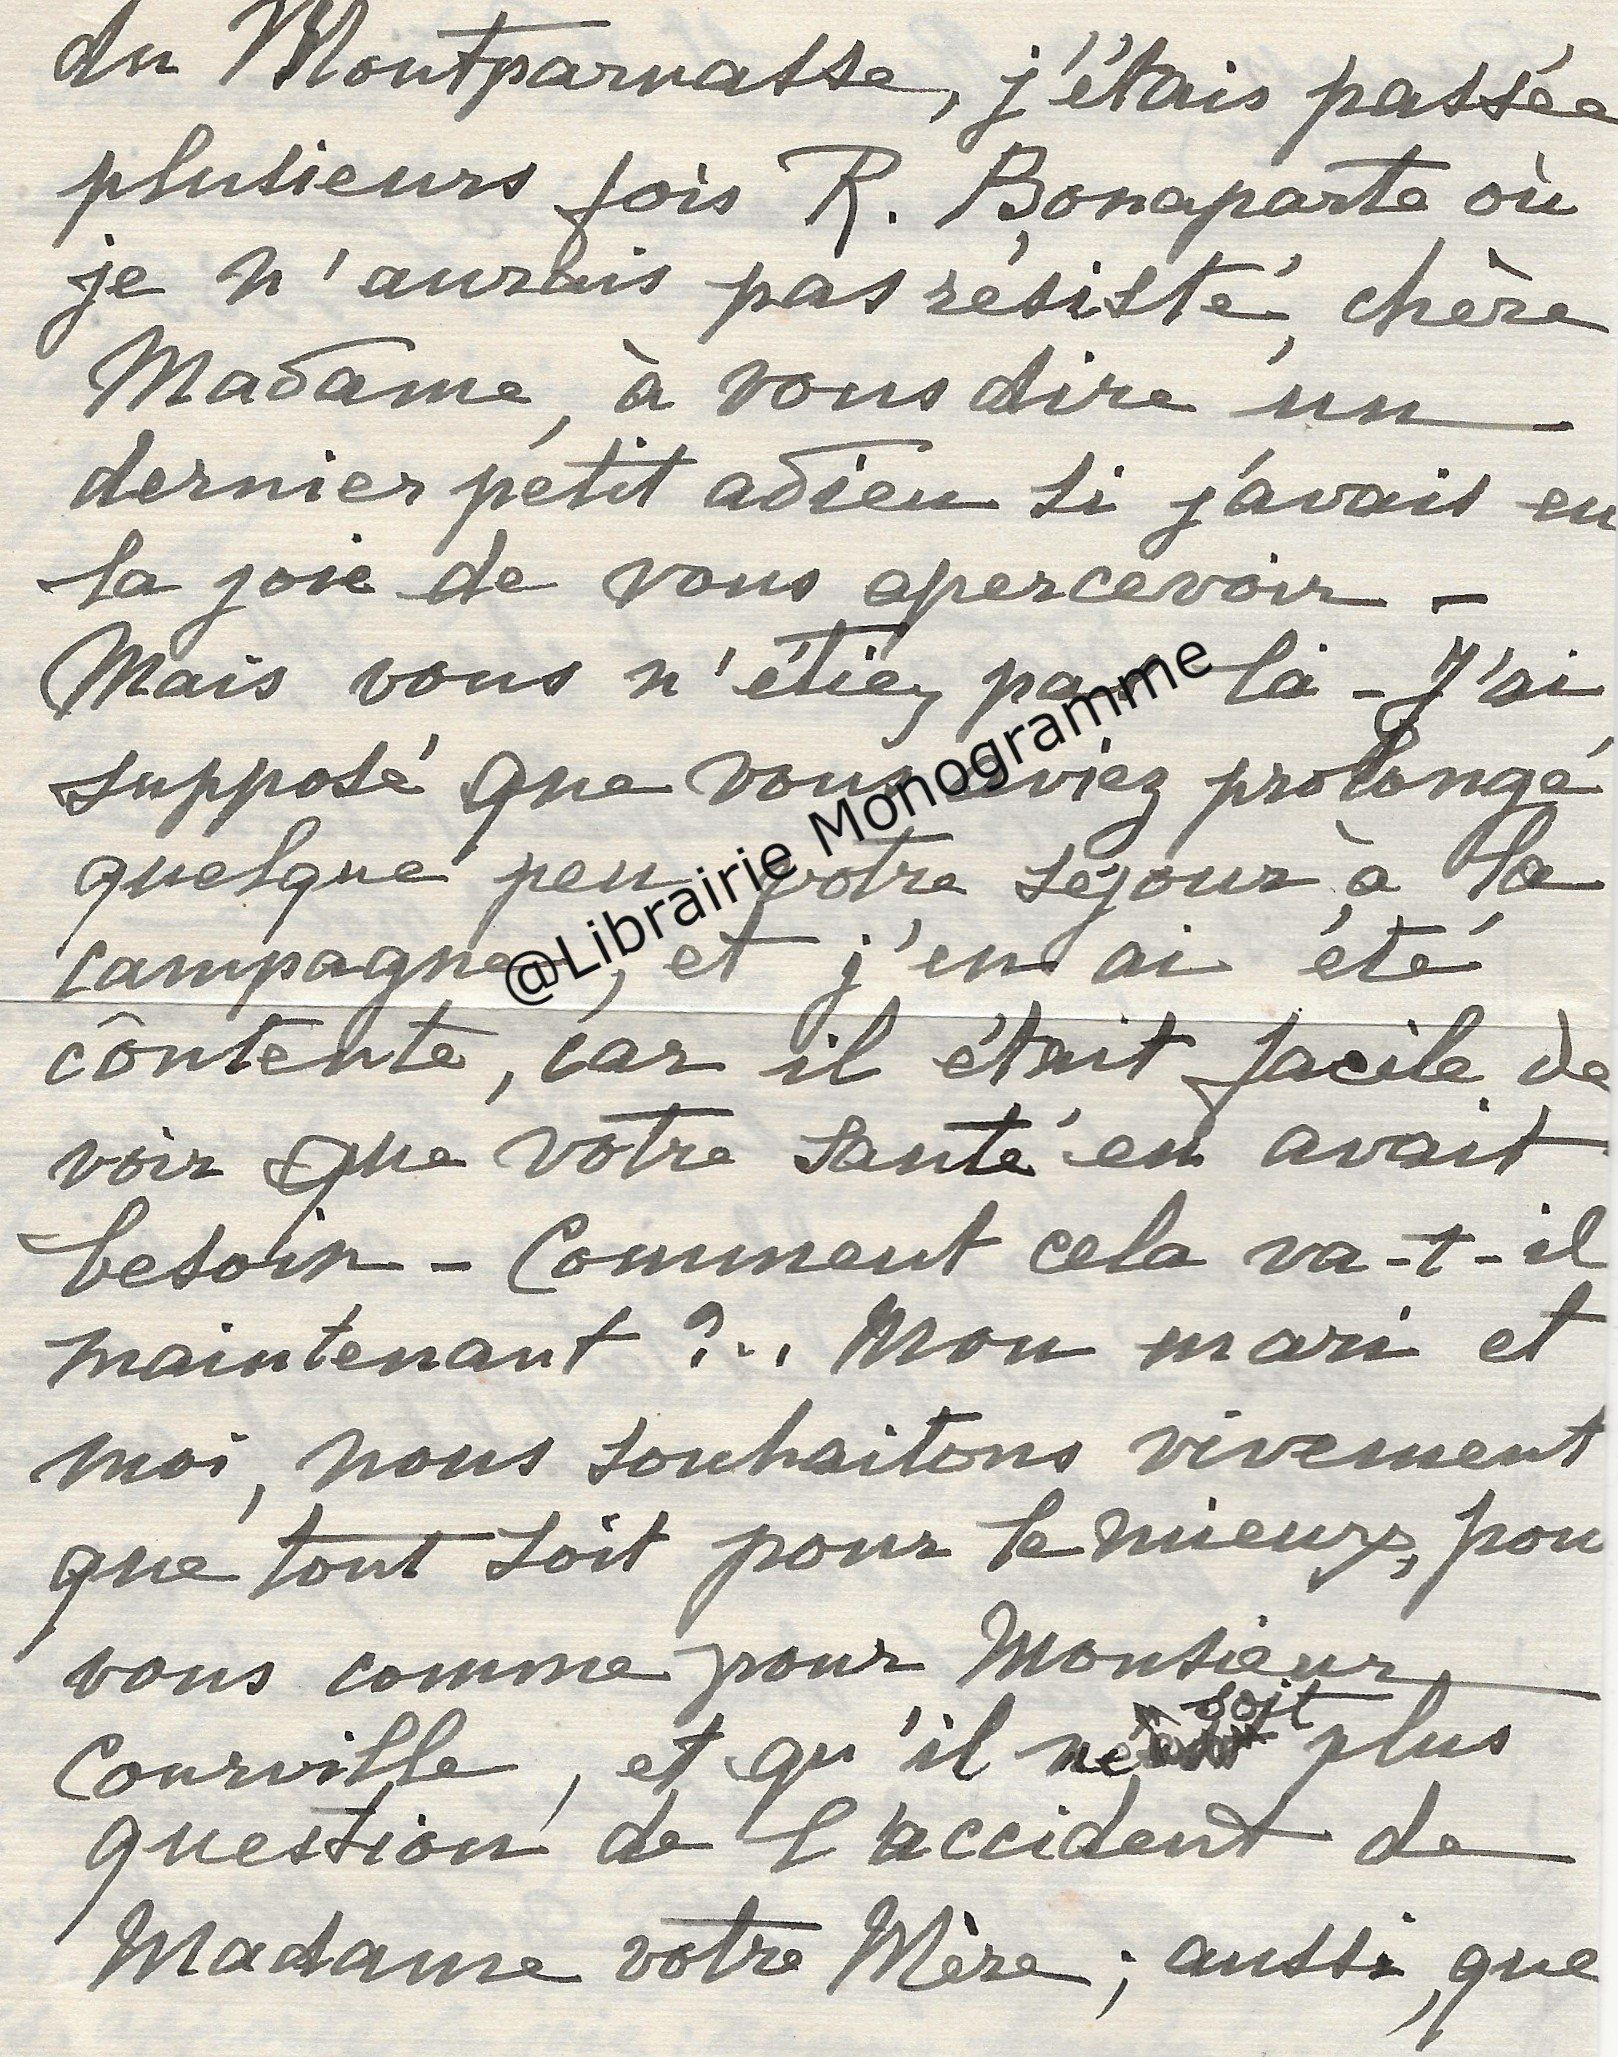 du Montparnasse, j'étais passée
plusieurs fois R. Bonaparte où
je n'aurais pas résisté, chère
Madame, à vous dire un
dernier petit adieu si j'avais eu
la joie de vous apercevoir -
Mais vous n'étiez pas là - J'ai
supposé que vous aviez prolongé
quelque peu votre séjour à la
campagne, et j'en ai été
contente, car il était facile de
voir que votre santé en avait
besoin - Comment cela va-t-il
maintenant ?.. Mon mari et
moi, nous souhaitons vivement
que tout soit pour le mieux, pou
vous comme pour Monsieur
Courville, et qu'il ne soit plus
question de l'accident de
Madame votre Mère ; aussi, que
@Librairie Monogramme